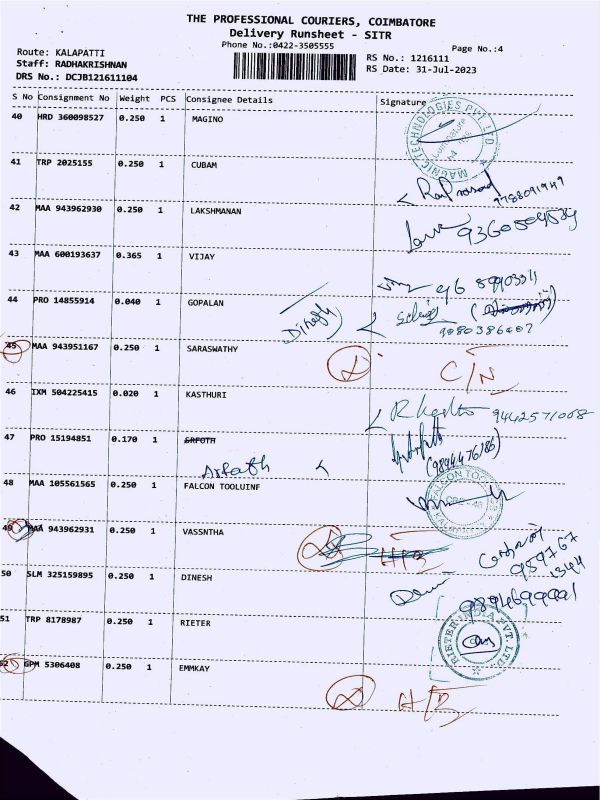 THE PROFESSIONAL COURIERS, COIMBATORE
Delivery Runsheet - SITR
Phone No.:0422-3505555
Page No.:4
Route: KALAPATTI
Staff: RADHAKRISHNAN
DRS No.: DCJB121611104
RS No.: 1216111
RS Date: 31-Jul-2023
S No Consignment No Weight PCS Consignee Details Signature
40 HRD 360098527 0.250 1 MAGINO
MAGNIC TECHNOLOGIES PVT. LTD.
41 TRP 2025155 0.250 1 CUBAM
9788091949
42 MAA 943962930 0.250 1 LAKSHMANAN
43 MAA 600193637 0.365 1 VIJAY
44 PRO 14855914 0.040 1 GOPALAN
Dinesh
9080386007
45 MAA 943951167 0.250 1 SARASWATHY
C/N
46 IXM 504225415 0.020 1 KASTHURI
9442571008
47 PRO 15194851 0.170 1 SRFOTH
(9894476186)
Arfath
48 MAA 105561565 0.250 1 FALCON TOOLUINF
FALCON TOOL
49 MAA 943962931 0.250 1 VASSNTHA
50 SLM 325159895 0.250 1 DINESH
51 TRP 8178987 0.250 1 RIETER
RIETER INDIA PVT. LTD.
52 GPM 5306408 0.250 1 EMMKAY